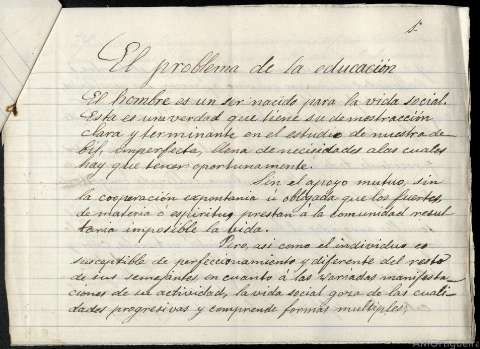 5
El problema de la educación
El hombre es un ser nacido para la vida social.
Esta es una verdad que tiene su demostracción
clara y terminante en el estudio de nuestra de-
bil, imperfecta, llena de necisidades a las cuales
hay que tener oportunamente.
Sin el apoyo mutuo, sin
la cooperación espontania ú obligada que los fuertes
de materia o espiritu prestan á la comunidad resul-
taria imposible la vida.
Pero, así como el individuo es
susceptible de perfeccionamiento y diferente del resto
de sus semejantes en cuanto á las variadas manifesta-
ciones de su actividad, la vida social goza de las cuali-
dades progresivas y comprende formas multiples;